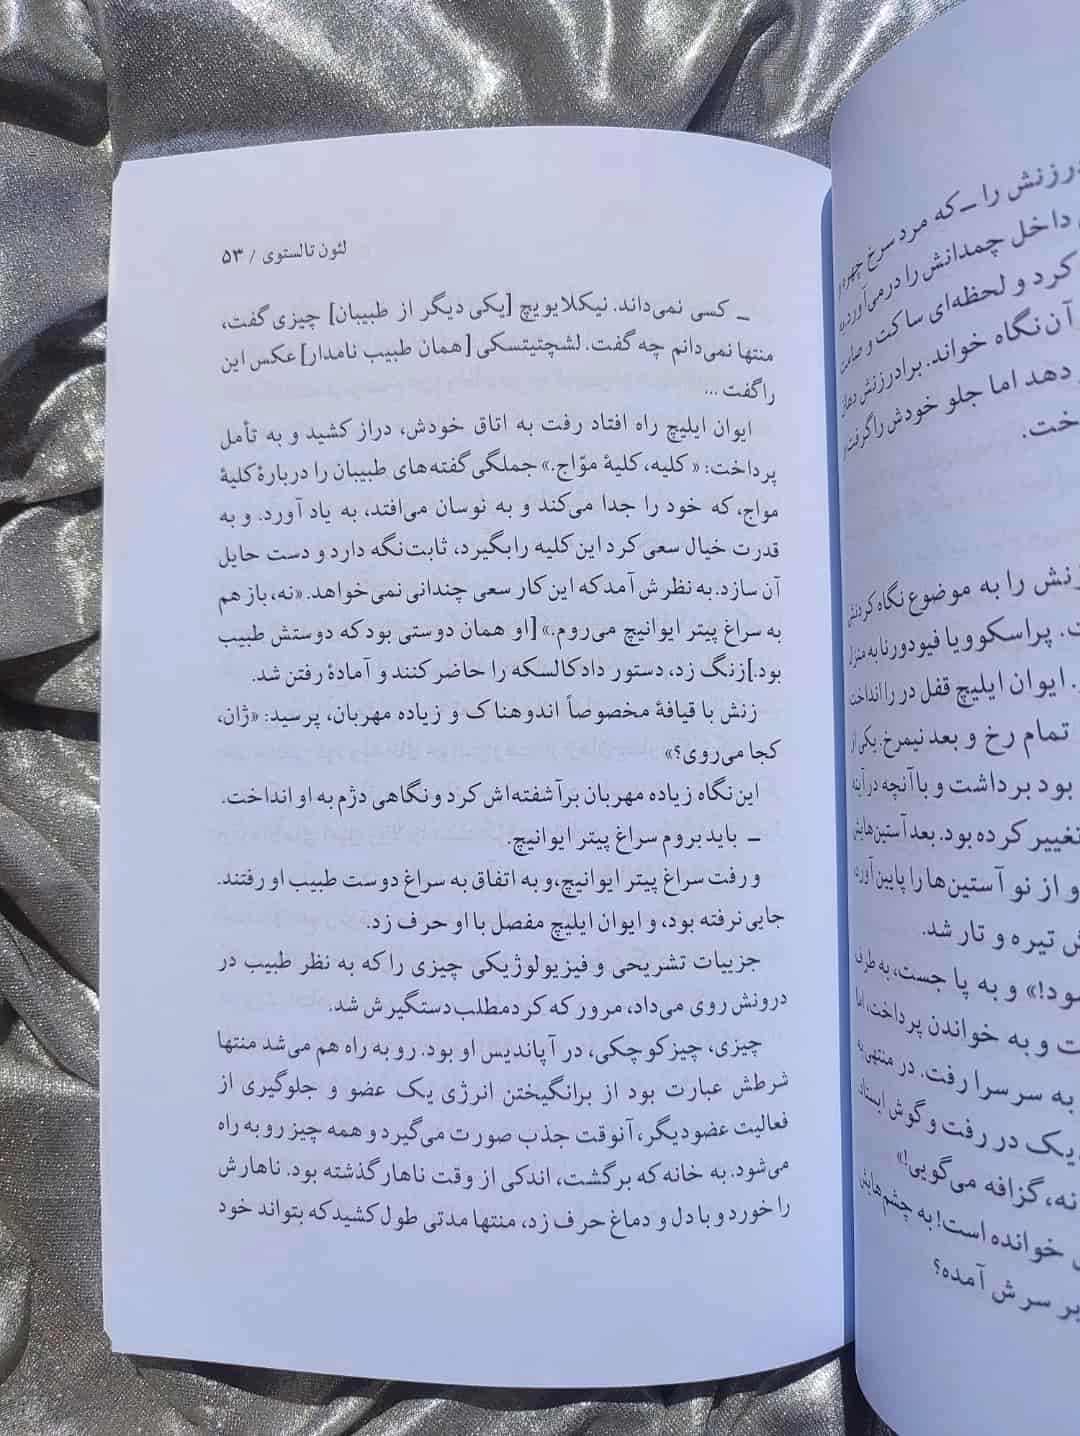 درزنش را ــ که مرد سرخ چهره
داخل چمدانش را درمی‌آورد، با
کرد و لحظه‌ای ساکت و صامت
آن نگاه خواند. برادرزنش دهان
دهد اما جلو خودش را گرفت و
خت.
زنش را به موضوع نگاه کردنش
ت. پراسکوویا فیودورنا به منزل
. ایوان ایلیچ قفل در را انداخت
تمام رخ و بعد نیمرخ. یکی از
بود برداشت و با آنچه در آینه
تغییر کرده بود. بعد آستین‌هایش
و از نو آستین‌ها را پایین آورد
ش تیره و تار شد.
ود!» و به پا جست، به طرف
ت و به خواندن پرداخت، اما
به سرسرا رفت. در منتهی به
دیک در رفت و گوش ایستاد.
نه، گزافه می‌گویی!»
خوانده است! به چشم‌هایش
بر سرش آمده؟
لئون تالستوی / ۵۳
ــ کسی نمی‌داند. نیکلایویچ [یکی دیگر از طبیبان] چیزی گفت،
منتها نمی‌دانم چه گفت. لشچتیتسکی [همان طبیب نامدار] عکس این
را گفت ...
ایوان ایلیچ راه افتاد رفت به اتاق خودش، دراز کشید و به تأمل
پرداخت: «کلیه، کلیهٔ موّاج.» جملگی گفته‌های طبیبان را دربارهٔ کلیهٔ
مواج، که خود را جدا می‌کند و به نوسان می‌افتد، به یاد آورد. و به
قدرت خیال سعی کرد این کلیه را بگیرد، ثابت نگه دارد و دست حایل
آن سازد. به نظرش آمد که این کار سعی چندانی نمی‌خواهد. «نه، باز هم
به سراغ پیتر ایوانیچ می‌روم.» [او همان دوستی بود که دوستش طبیب
بود.] زنگ زد، دستور داد کالسکه را حاضر کنند و آمادهٔ رفتن شد.
زنش با قیافهٔ مخصوصاً اندوهناک و زیاده مهربان، پرسید: «ژان،
کجا می‌روی؟»
این نگاه زیاده مهربان برآشفته‌اش کرد و نگاهی دژم به او انداخت.
ــ باید بروم سراغ پیتر ایوانیچ.
و رفت سراغ پیتر ایوانیچ، و به اتفاق به سراغ دوست طبیب او رفتند.
جایی نرفته بود، و ایوان ایلیچ مفصل با او حرف زد.
جزییات تشریحی و فیزیولوژیکی چیزی را که به نظر طبیب در
درونش روی می‌داد، مرور که کرد مطلب دستگیرش شد.
چیزی، چیز کوچکی، در آپاندیس او بود. رو به راه هم می‌شد منتها
شرطش عبارت بود از برانگیختن انرژی یک عضو و جلوگیری از
فعالیت عضو دیگر، آنوقت جذب صورت می‌گیرد و همه چیز رو به راه
می‌شود. به خانه که برگشت، اندکی از وقت ناهار گذشته بود. ناهارش
را خورد و با دل و دماغ حرف زد، منتها مدتی طول کشید که بتواند خود